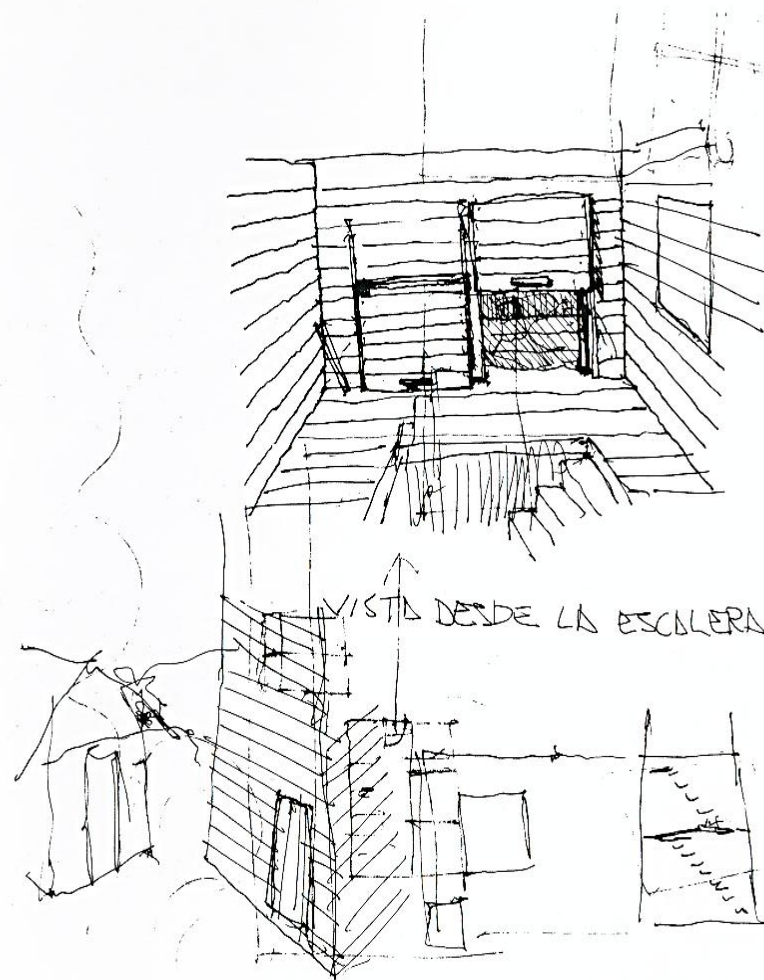 VISTA DESDE LA ESCALERA